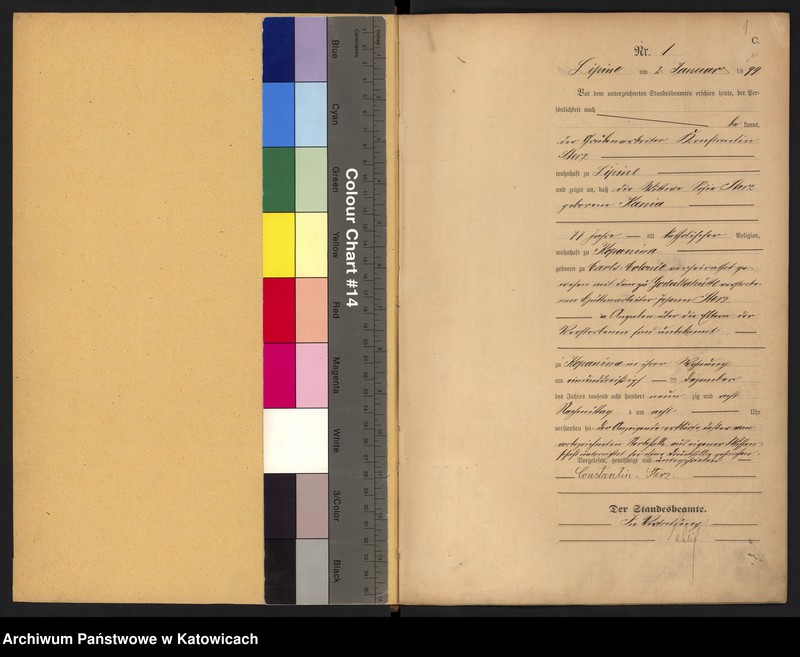 Blue
Cyan
Green
Yellow
Red
Magenta
White
3/Color
Black
Colour Chart #14
Centimetres
1
C.
Nr. 1
Lipine am 2 Januar 1899
Vor dem unterzeichneten Standesbeamten erschien heute, der Per-
sönlichkeit nach
be kannt,
der Grubenarbeiter Konstantin
Sterz
wohnhaft zu Lipine
und zeigte an, daß die Witwe Sterz
geborene Kania
Jahre alt katholischer Religion,
wohnhaft zu Kopanina
geboren zu Carls Colonie verheirathet ge-
wesen mit dem zu Godullahütte verstorbe-
nen Hüttenarbeiter Johann Sterz
Angaben über die Eltern der
Verstorbenen sind unbekannt
zu Kopanina in ihrer Wohnung
am einunddreißigsten Dezember
des Jahres tausend acht hundert neun zig und acht
Nachmittag s um acht Uhr
verstorben sei
Vorgelesen, genehmigt und unterschrieben
Constantin Sterz.
Der Standesbeamte.
In Vertretung
Archiwum Państwowe w Katowicach